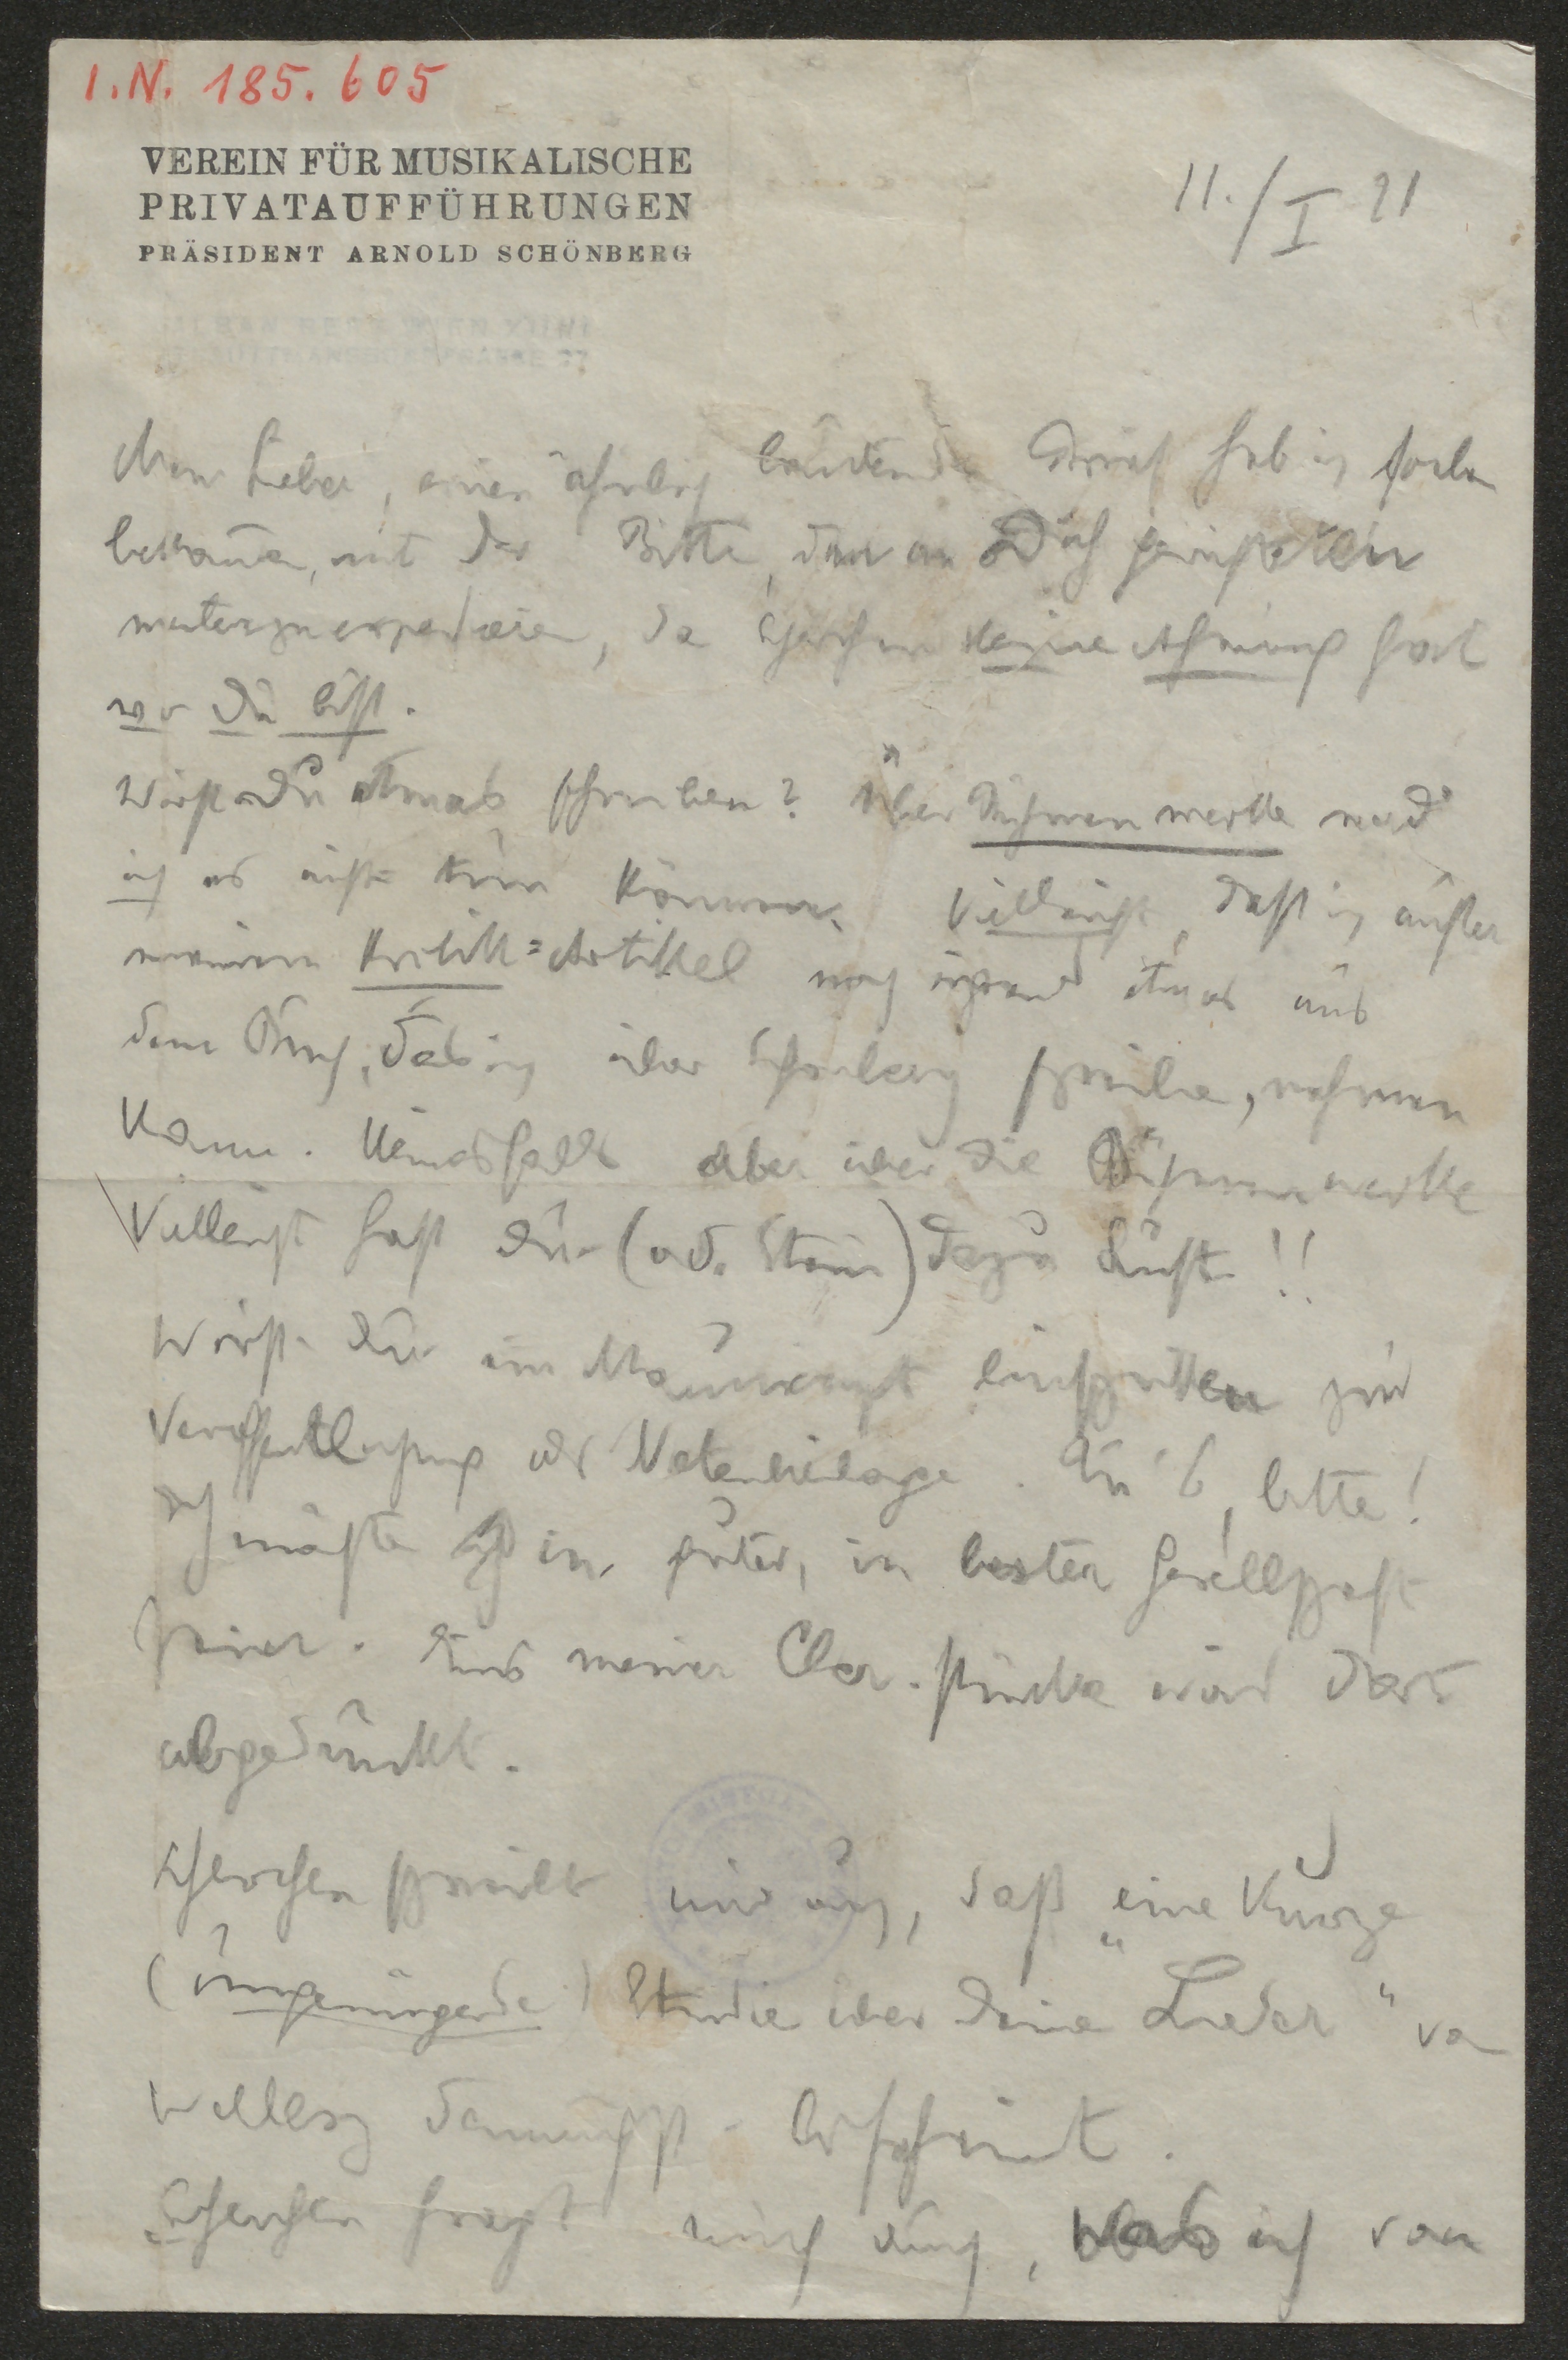 I.N. 185.605
VEREIN FÜR MUSIKALISCHE
PRIVATAUFFÜHRUNGEN
PRÄSIDENT ARNOLD SCHÖNBERG
11./I 21
ALBAN BERG WIEN XIII/1
TRAUTTMANSDORFFGASSE 27
Mein Lieber, einen ähnlich lautenden Brief hab ich soeben
bekommen, mit der Bitte, den an Dich gerichteten
weiterzuexpedieren, da Scherchen keine Ahnung hat
wo Du bist.
Wirst Du etwas schreiben? Über Bühnenwerke werd
ich es nicht tun können. Vielleicht, daß ich außer
meinem Kritik=Artikel noch irgend etwas aus
dem Buch, das ich über Schönberg schreibe, nehmen
kann. Keinesfalls aber über die Bühnenwerke
Vielleicht hast Du (od. Stein) dazu Lust!!
Wirst Du ein Manuskript einschicken zur
Veröffentlichung als Notenbeilage. Tu's, bitte!
Ich möchte in guter, in bester Gesellschaft
sein. Eins meiner Clar. stücke wird dort
abgedruckt.
Scherchen schreibt mir auch, daß „eine kurze
(ungenügende) Studie über Deine Lieder" von
Wellesz demnächst erscheint.
Scherchen fragt mich auch, was ich von